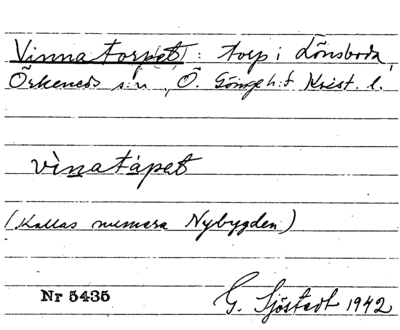 Vinnatorpet: torp i Lönsboda,
Örkeneds s:n, Ö. Göinge h:d Krist. l.
vìnatápet
(Kallas numera Nybygden)
Nr 5435
G. Sjöstedt 1942